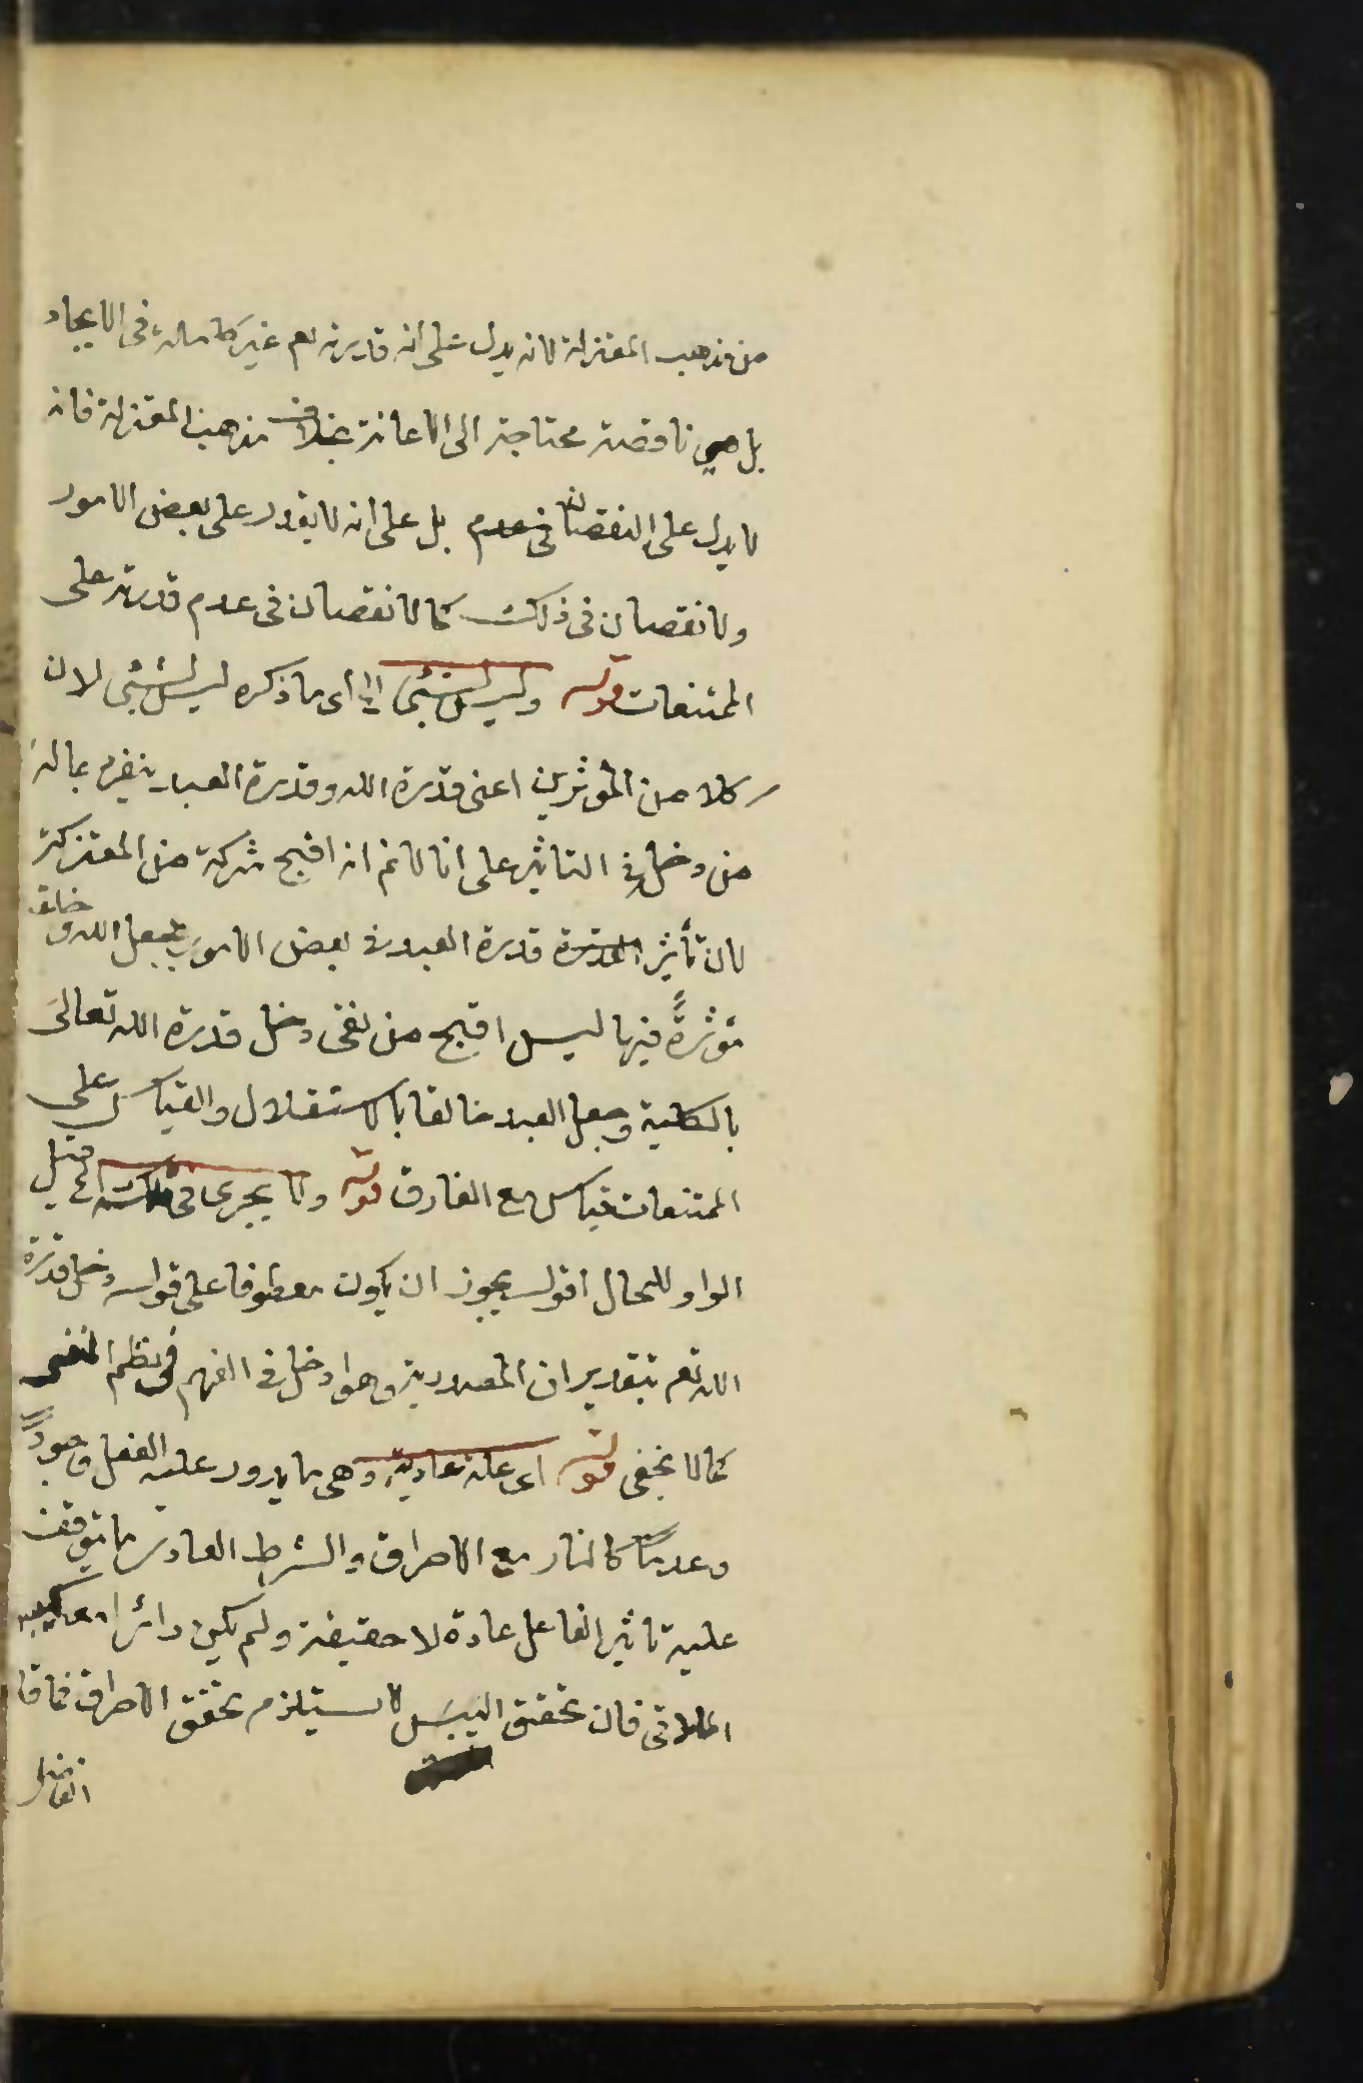 من مذهب المعتزلة لانه يدل على انه قدرته تعم غير كاملة في الايجاد
بل هي ناقصة محتاجة الى الاعانة بخلاف مذهب المعتزلة فانه
لا يدل على النقصان في عدم بل على انه لا يقدر على بعض الامور
ولا نقصان في ذلك كما لا نقصان في عدم قدرته على
الممتنعات قوله وليس بشئ الخ اى ما ذكره ليس بشئ لان
كلا من المؤثرين اعنى قدرة الله وقدرة العبد ينفرد بماله
من دخل في التاثير على انا لانم انه اقبح شركة من المعتزلة
لان تأثير قدرة العبد في بعض الامور بجعل الله وخلقه
مؤثرةً فيها ليس اقبح من نفى دخل قدرة الله تعالى
بالكلية وجعل العبد خالقا بالاستقلال والقياس على
الممتنعات قياس مع الفارق قوله ولا يجرى في ملكه الخ قيل
الواو للحال اقول يجوز ان يكون معطوفا على قوله دخل قدرة
الله تعم بتقدير ان المصدرية وهو ادخل في الفهم في نظم
كما لا يخفى قوله اى علة عادية وهى ما يدور عليه الفعل وجوداً
وعدمًا كالنار مع الاحراق والشرط العادى ما يتوقف
عليه تاثير الفاعل عادة لا حقيقة ولم يكن دائرا معه كيبس
الملاقى فان تحقق اليبس لا يستلزم تحقق الاحراق فما قا
الفاضل